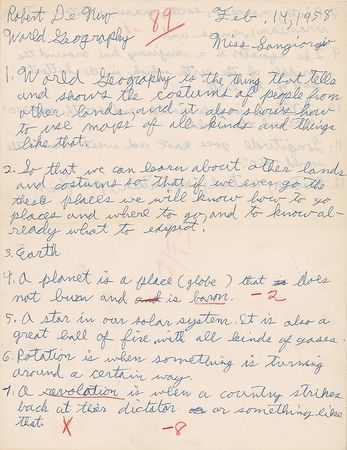 Robert De Niro 89 Feb. 14, 1958
World Geography Miss Sangiorgio
1. World Geography is the thing that tells
and shows the costums of people from
other lands, and it also shows how
to use maps of all kinds and things
like that.
2. So that we can learn about other lands
and costums so that if we ever go to
these places we will know how to go
places and where to go, and to know al-
ready what to expect.
3. Earth
4. A planet is a place (globe) that is does
not burn and and is baron. -2
5. A star in our solar system. It is also a
great ball of fire with all kinds of gasses.
6. Rotation is when something is turning
around a certain way.
7. A revolation is when a country strikes
back at their dictator or or something like
that. X -8